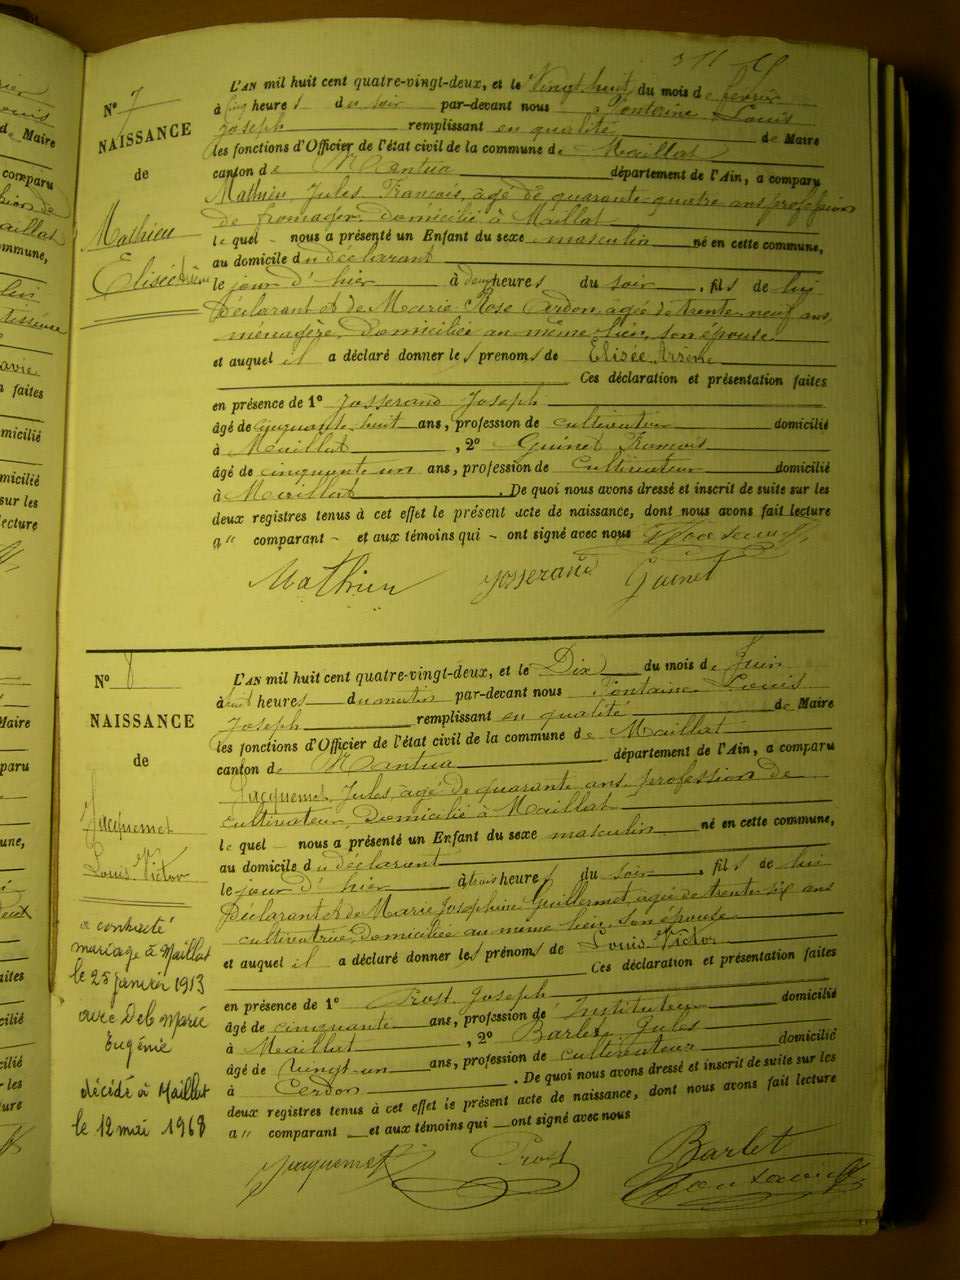 N° 7
NAISSANCE
de
Mathieu
Elisée Arsène
L'AN mil huit cent quatre-vingt-deux, et le Vingt huit du mois de février
à cinq heures du soir par-devant nous Fontaine Louis
Joseph remplissant en qualité de Maire
les fonctions d'Officier de l'état civil de la commune de Maillat
canton de Nantua département de l'Ain, a comparu
Mathieu, Jules, François, âgé de quarante-quatre ans, profession
de fromager, domicilié à Maillat
le quel nous a présenté un Enfant du sexe masculin né en cette commune,
au domicile du déclarant
le jour d'hier à heures du soir, fils de lui
Déclarant et de Marie Rose Cerdon, agée de trente neuf ans,
ménagère, domiciliée au même lieu, son épouse
et auquel il a déclaré donner les prénoms de Elisée Arsène
Ces déclaration et présentation faites
en présence de 1° Josserand Joseph
âgé de cinquante-huit ans, profession de cultivateur domicilié
à Maillat, 2° Guinet François
âgé de cinquante un ans, profession de Cultivateur domicilié
à Maillat. De quoi nous avons dressé et inscrit de suite sur les
deux registres tenus à cet effet le présent acte de naissance, dont nous avons fait lecture
a" comparant et aux témoins qui ont signé avec nous
Mathieu Josserand Guinet
N° 8
NAISSANCE
de
Jacquemet
Louis Victor
a contracté
mariage à Maillat
le 25 janvier 1913
avec Deb Marie
Eugénie
décédé à Maillat
le 12 mai 1968
L'AN mil huit cent quatre-vingt-deux, et le Dix du mois de Juin
à huit heures du matin par-devant nous Fontaine Louis
Joseph remplissant en qualité de Maire
les fonctions d'Officier de l'état civil de la commune de Maillat
canton de Nantua département de l'Ain, a comparu
Jacquemet, Jules, âgé de quarante ans, profession de
cultivateur, domicilié à Maillat
le quel nous a présenté un Enfant du sexe masculin né en cette commune,
au domicile du déclarant
le jour d'hier à trois heures du soir, fils de lui
Déclarant et de Marie Josephine Guillermet, agée de trente six ans
cultivatrice, domiciliée au même lieu, son épouse
et auquel il a déclaré donner les prénoms de Louis Victor
Ces déclaration et présentation faites
en présence de 1° Prost Joseph
âgé de cinquante ans, profession de Instituteur domicilié
à Maillat, 2° Barlet Jules
âgé de vingt-un ans, profession de cultivateur domicilié
à Cerdon. De quoi nous avons dressé et inscrit de suite sur les
deux registres tenus à cet effet le présent acte de naissance, dont nous avons fait lecture
a" comparant et aux témoins qui ont signé avec nous
Jacquemet Prost Barlet